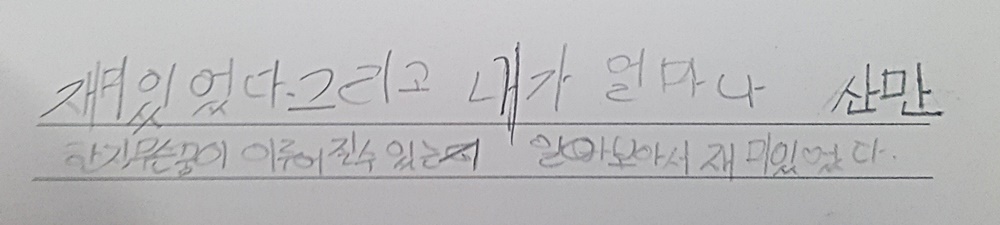 재미있었다. 그리고 내가 얼마나 산만
한지 무슨 꿈이 이루어 질수 있는지 알아보아서 재미있었다.